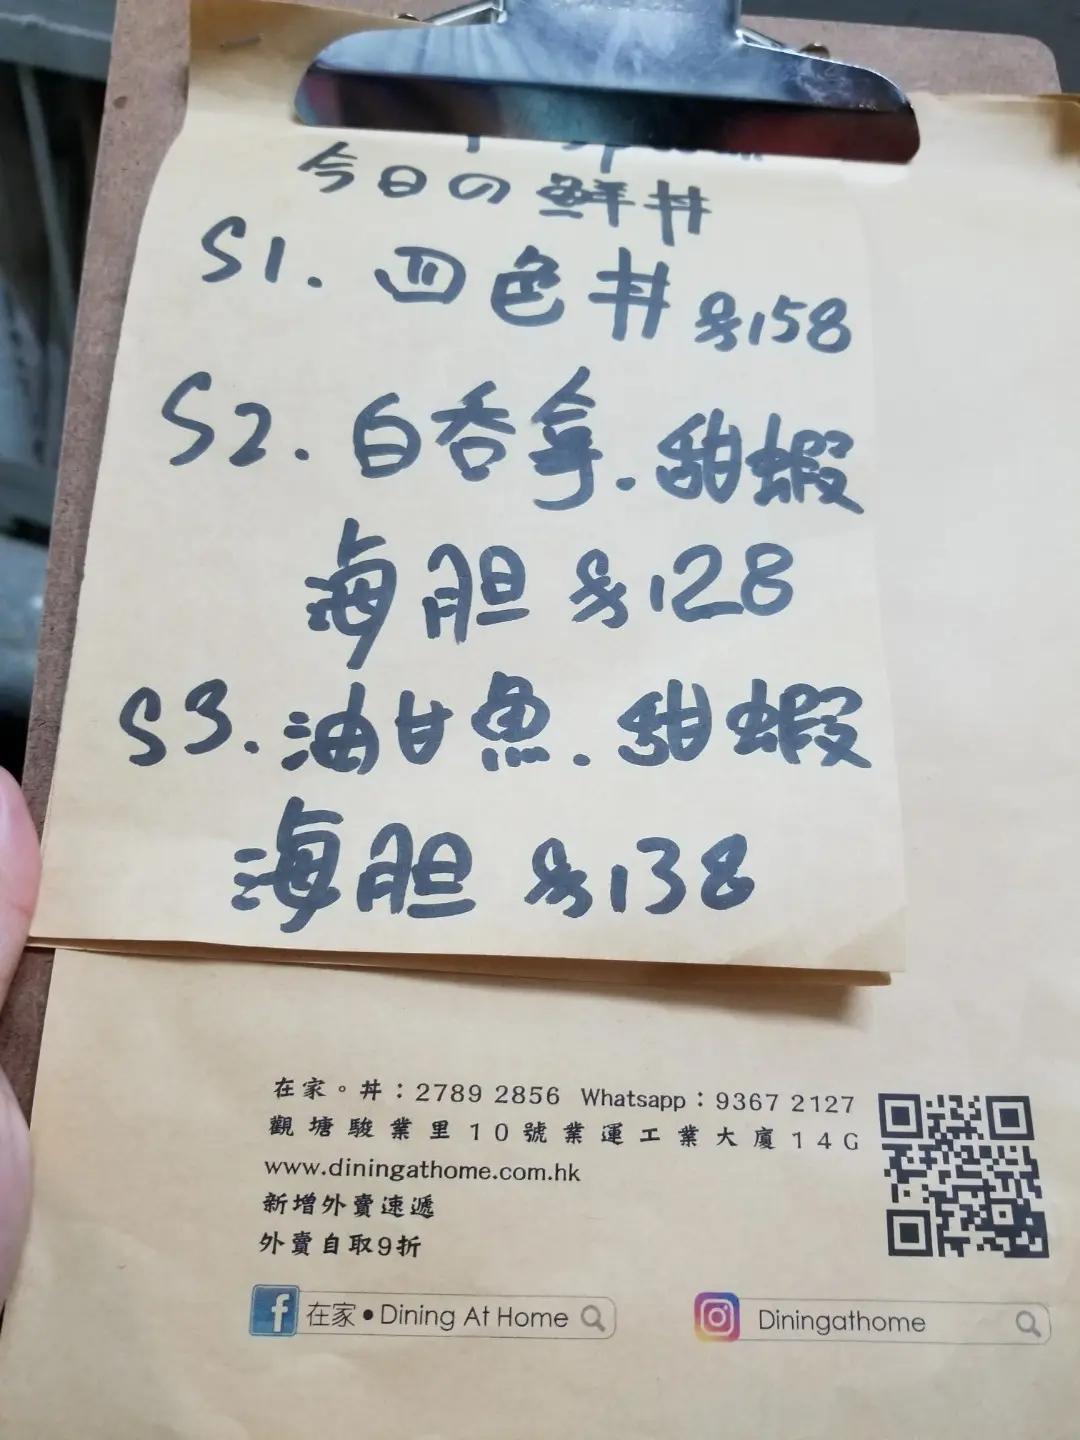 今日の鮮丼
S1. 四色丼 $158
S2. 白吞拿.甜蝦
海胆 $128
S3. 油甘魚.甜蝦
海胆 $138
在家。丼：2789 2856 Whatsapp：9367 2127
觀塘駿業里10號業運工業大廈14G
www.diningathome.com.hk
新增外賣速遞
外賣自取9折
f 在家•Dining At Home
Diningathome